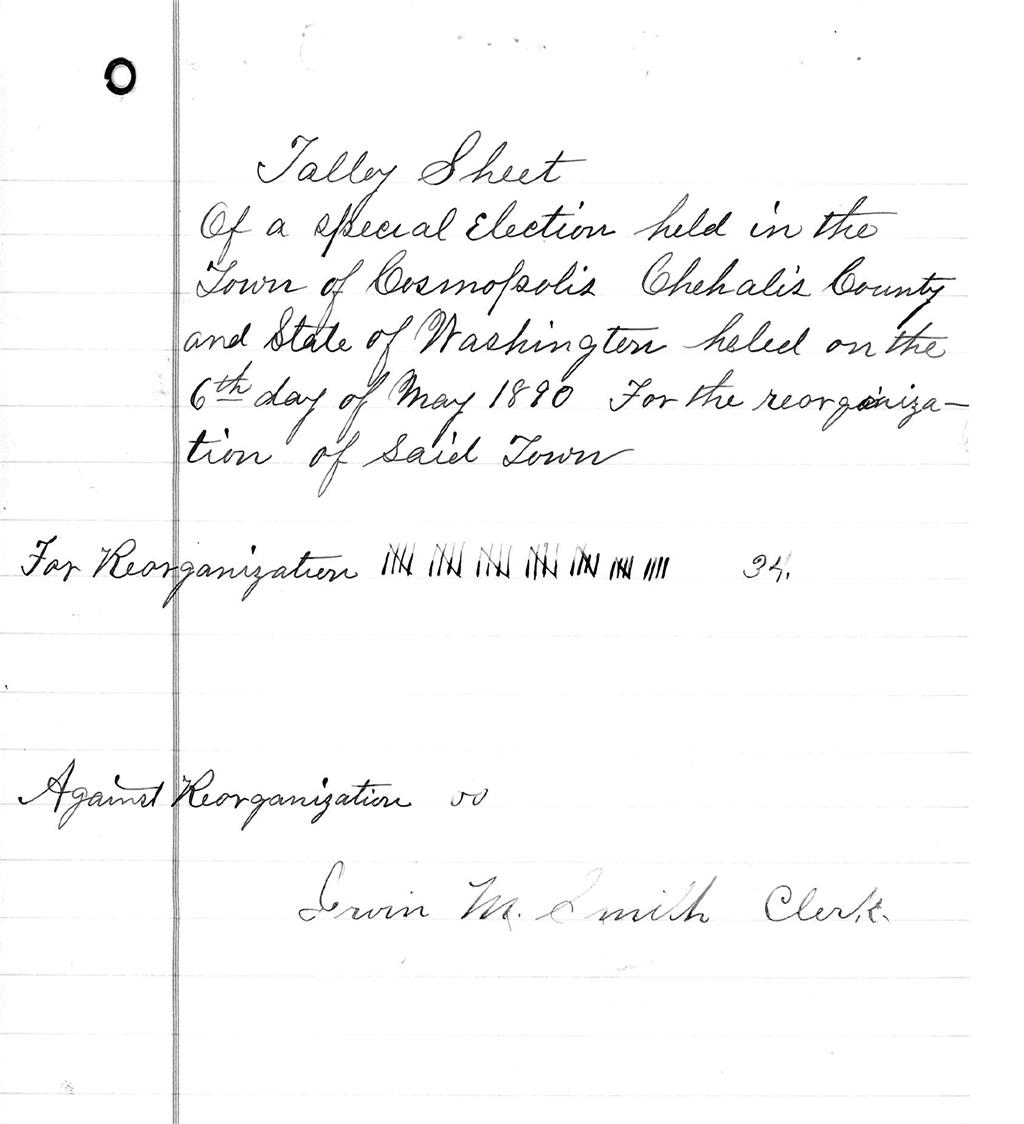 Talley Sheet
Of a special Election held in the
Town of Cosmopolis Chehalis County
and State of Washington heled on the
6th day of May 1890 For the reorganiza-
tion of said Town
For Reorganization 34.
Against Reorganization 00
Irvin M. Smith Clerk.